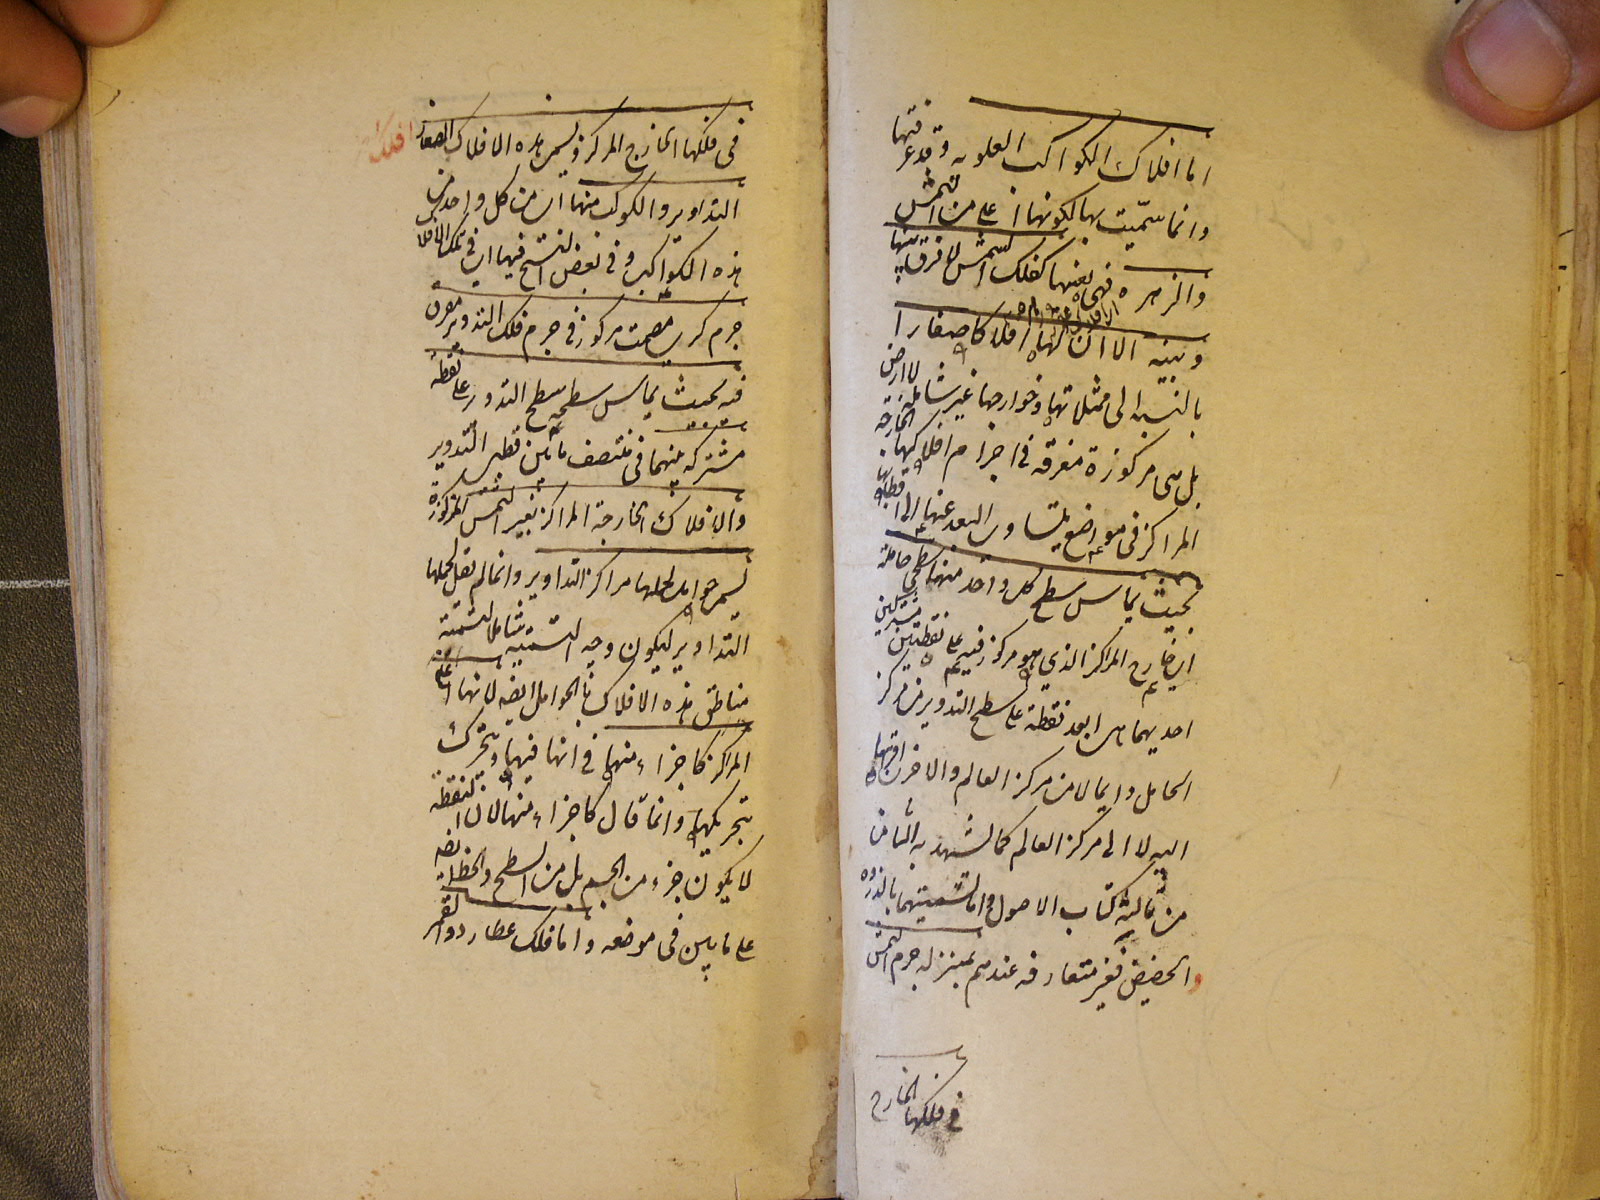 اما افلاك الكواكب العلويه وقد عرفتها
وانما سمّيت بها لكونها اعلى من الشمس
والزهره فهى بعينها كفلك الشمس لا فرق بينها
وبينه الا ان لها افلاكا صغارا
بالنسبه الى ممثلاتها وخوارجها غير شاملة للارض
بل هى مركوزة مغرقه فى اجرام افلاكها الخارجة
المراكز فى مواضع يتساوى البعد عنها الى اقطابها
بحيث يماس سطح كل واحد منها سطحى حامله
اى خارج المركز الذي هو مركوز فيه على نقطتين مشتركتين
احديهما هى ابعد نقطة على سطح التدوير من مركز
الحامل دايما لا من مركز العالم والاخرى اقربها
اليه لا الى مركز العالم كما يشهد به الثامن
من ثالثة كتاب الاصول واما تسميتهما بالذروه
والحضيض فغير متعارفه عندهم بمنزله جرم الشمس
فى فلكها الخارج
فى فلكها الخارج المركز ويسمى هذه الافلاك الصغار
افلاك
التداوير والكوكب منها اى من كل واحد من
هذه الكواكب وفى بعض النسخ فيها اى فى تلك الافلاك
جرم كرى مصمت مركوز فى جرم فلك التدوير مغرق
فيه بحيث يماس سطحه سطح التدوير على نقطة
مشتركه بينهما فى منتصف ما بين قطبى التدوير
والافلاك الخارجة المراكز بغير الشمس المركوزة
يسمى حوامل لحملها مراكز التداوير وانما لم يقل لحملها
التداوير ليكون وجه التسميه شاملا لتسمية
مناطق هذه الافلاك بالحوامل ايضه لانها اى
المراكز كاجزاء منها فى انها فيها ويتحرك
بتحريكها وانما قال كاجزاء منها لان النقطة
لا يكون جزء من الجسم بل من السطح والخط ايضه
على ما بين فى موضعه واما فلك عطارد والقمر